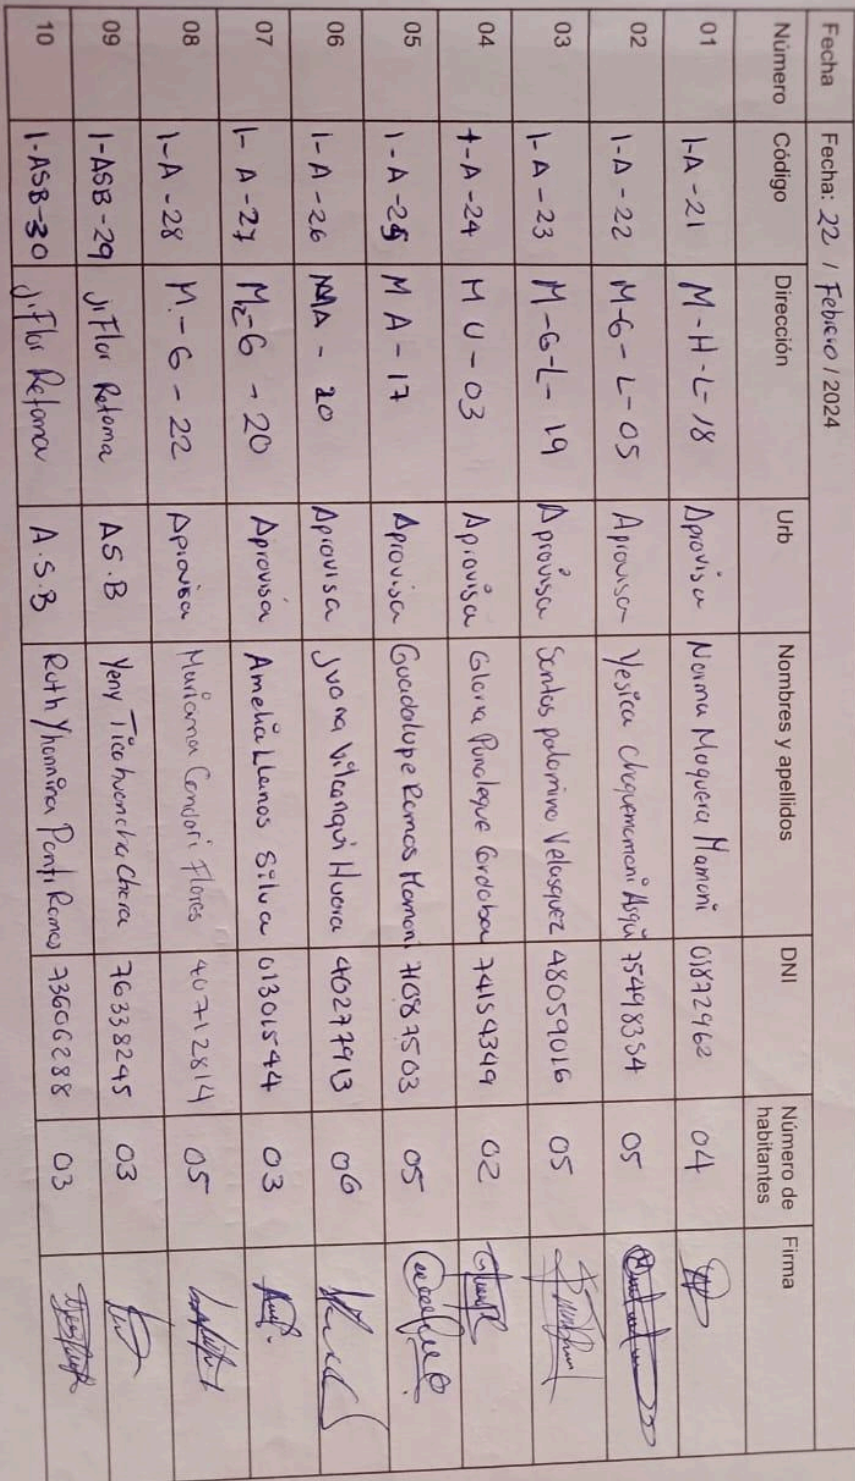 Fecha Fecha: 22 / Febrero / 2024
Número Código Dirección Urb Nombres y apellidos DNI Número de habitantes Firma
01 1-A-21 M-H-L-18 Aprovisa Norma Maquera Mamani 01872962 04
02 1-A-22 M-G-L-05 Aprovisa Yesica Choquemamani 75498354 05
03 1-A-23 M-G-L-19 Aprovisa Santos palomino Velasquez 48059016 05
04 1-A-24 M U-03 Aprovisa Gloria Cordoba 74154349 02
05 1-A-25 M A-17 Aprovisa Guadalupe Ramos Mamani 71087503 05
06 1-A-26 MA-20 Aprovisa Juana Vilcanqui 40277913 06
07 1-A-27 Mz-G-20 Aprovisa Amelia Llanos Silva 01301544 03
08 1-A-28 M.-G-22 Aprovisa Mariama Condori Flores 40712814 05
09 1-ASB-29 Jr Flor Retama AS.B Yeny Ticahuanca 76338245 03
10 1-ASB-30 Jr Flor Retama A.S.B Ruth Yhomira Ramos 73606288 03